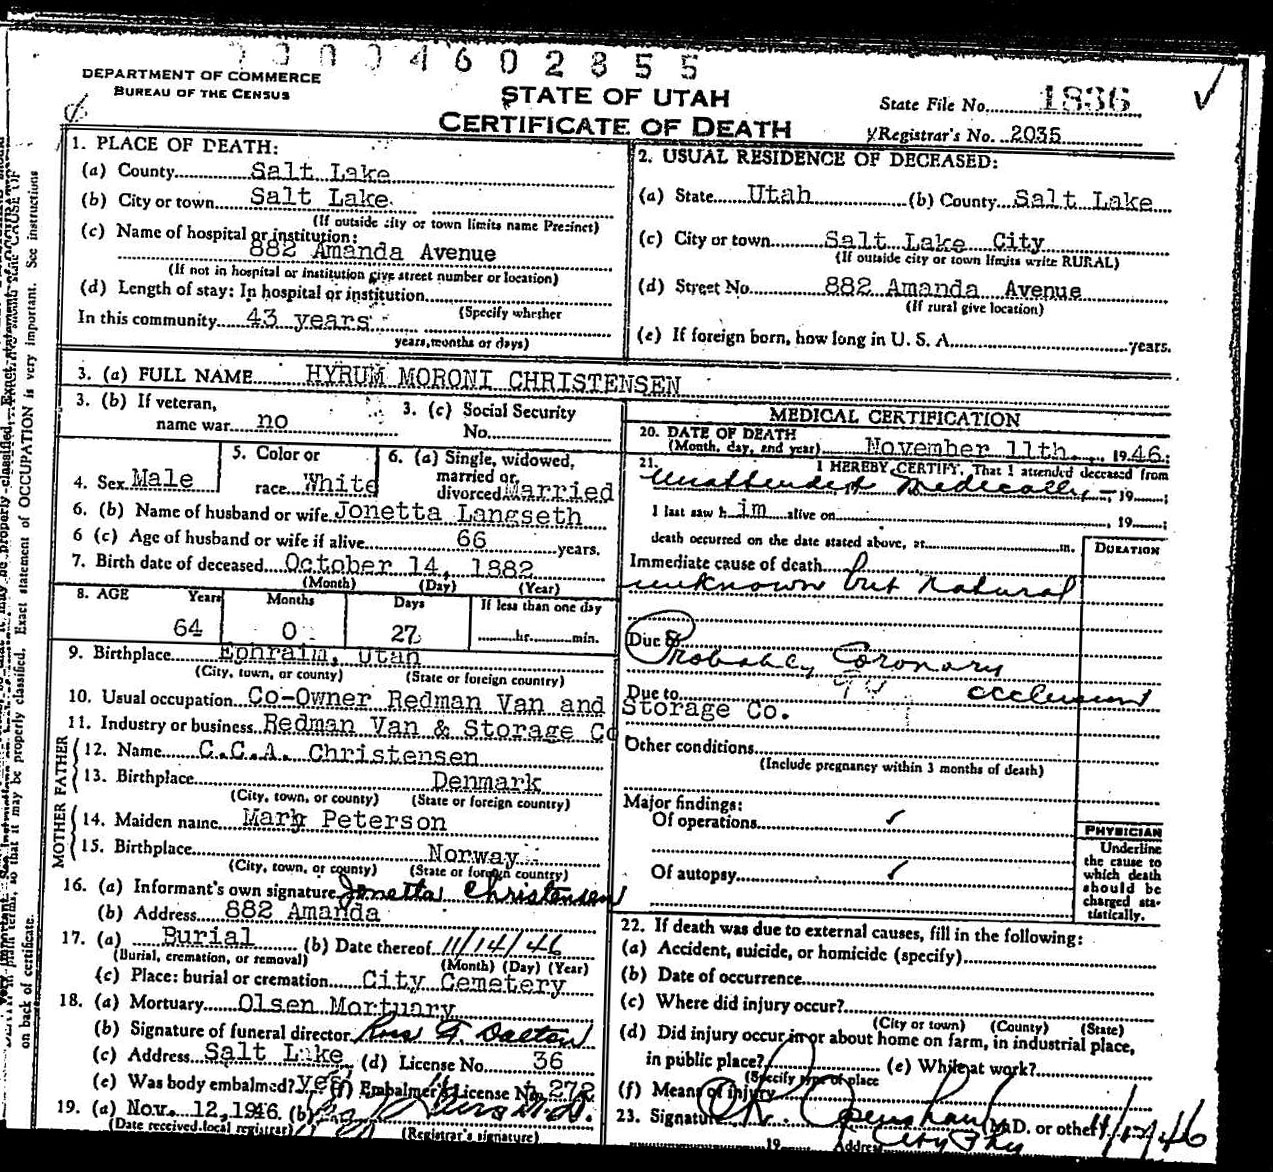 4602855
DEPARTMENT OF COMMERCE
BUREAU OF THE CENSUS
STATE OF UTAH
CERTIFICATE OF DEATH
State File No. 1836
Registrar's No. 2035
1. PLACE OF DEATH:
(a) County Salt Lake
(b) City or town Salt Lake
(If outside city or town limits name Precinct)
(c) Name of hospital or institution:
882 Amanda Avenue
(If not in hospital or institution give street number or location)
(d) Length of stay: In hospital or institution
(Specify whether
In this community 43 years
years, months or days)
2. USUAL RESIDENCE OF DECEASED:
(a) State Utah (b) County Salt Lake
(c) City or town Salt Lake City
(If outside city or town limits write RURAL)
(d) Street No. 882 Amanda Avenue
(If rural give location)
(e) If foreign born, how long in U. S. A. years.
3. (a) FULL NAME HYRUM MORONI CHRISTENSEN
3. (b) If veteran,
name war no
3. (c) Social Security
No.
4. Sex Male
5. Color or
race White
6. (a) Single, widowed,
married or,
divorced Married
6. (b) Name of husband or wife Jonetta Langseth
6 (c) Age of husband or wife if alive 66 years.
7. Birth date of deceased October 14, 1882
(Month) (Day) (Year)
8. AGE Years Months Days If less than one day
64 0 27 hr. min.
9. Birthplace Ephraim, Utah
(City, town, or county) (State or foreign country)
10. Usual occupation Co-Owner Redman Van and Storage Co.
11. Industry or business Redman Van & Storage Co
FATHER
12. Name C.C.A. Christensen
13. Birthplace Denmark
(City, town, or county) (State or foreign country)
MOTHER
14. Maiden name Mary Peterson
15. Birthplace Norway
(City, town, or county) (State or foreign country)
16. (a) Informant's own signature Jonetta Christensen
(b) Address 882 Amanda
17. (a) Burial (b) Date thereof 11/14/46
(Burial, cremation, or removal) (Month) (Day) (Year)
(c) Place: burial or cremation City Cemetery
18. (a) Mortuary Olsen Mortuary
(b) Signature of funeral director Ross G. Dalton
(c) Address Salt Lake (d) License No. 36
(e) Was body embalmed? yes (f) Embalmer's License No. 272
19. (a) Nov. 12, 1946 (b)
(Date received local registrar) (Registrar's signature)
MEDICAL CERTIFICATION
20. DATE OF DEATH
(Month, day, and year) November 11th 1946;
21. I HEREBY CERTIFY, That I attended deceased from
Unattended Medically - 19 ;
I last saw him alive on , 19 ;
death occurred on the date stated above, at m.
DURATION
Immediate cause of death
unknown but natural
Due to
Probably Coronary
Due to occlusion
Other conditions
(Include pregnancy within 3 months of death)
Major findings:
Of operations
Of autopsy
PHYSICIAN
Underline
the cause to
which death
should be
charged sta-
tistically.
22. If death was due to external causes, fill in the following:
(a) Accident, suicide, or homicide (specify)
(b) Date of occurrence
(c) Where did injury occur?
(City or town) (County) (State)
(d) Did injury occur in or about home on farm, in industrial place,
in public place? (e) While at work?
(Specify type of place
(f) Means of injury
23. Signature (M.D. or other)
19 Address
OCCUPATION is very important. See instructions
on back of certificate.